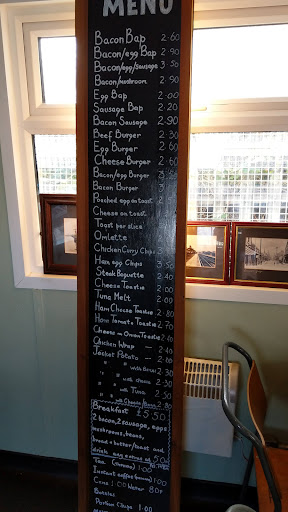 MENU
Bacon Bap 2.60
Bacon/egg Bap 2.90
Bacon/egg/sausage 3.50
Bacon/mushroom 2.90
Egg Bap 2.00
Sausage Bap 2.20
Bacon Sausage 2.90
Beef Burger 2.30
Egg Burger 2.60
Cheese Burger 2.60
Bacon/egg Burger 3.50
Bacon Burger
Poached egg on toast
Cheese on toast
Toast per slice
Omlette
Chicken Curry Chips
Ham egg Chips 3.50
Steak Baguette 2.40
Cheese Toastie 2.00
Tuna Melt
Ham Cheese Toastie 2.80
Ham Tomato Toastie 2.70
Cheese Onion Toastie 2.20
Chicken Wrap - 2.40
Jacket Potato - 2.00
" " with Beans 2.30
" " with cheese 2.30
" " with Tuna 2.50
" " with Cheese Beans 2.80
Breakfast £5.50
2 bacon, 2 sausage, eggs
mushrooms, beans,
bread + butter/toast and
drink
Tea 1.00
Instant coffee 1.00
Cans 1.00 Water 80p
Butties
Portion Chips 1.00